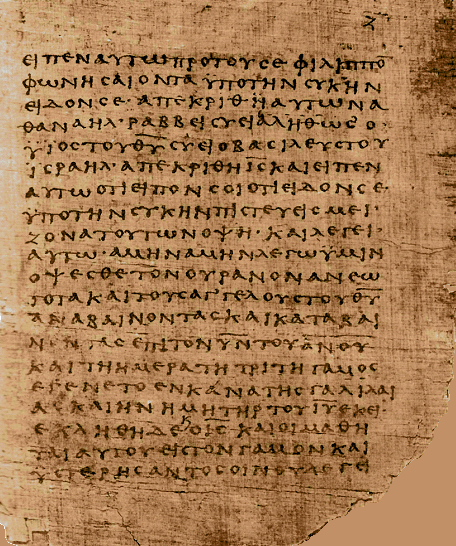 Ζ
ΕΙΠΕΝΑΥΤΩΠΡΟΤΟΥϹΕΦΙΛΙΠΠΟ̅
ΦΩΝΗϹΑΙΟΝΤΑΥΠΟΤΗΝϹΥΚΗΝ
ΕΙΔΟΝϹΕ·ΑΠΕΚΡΙΘΗΑΥΤΩΝΑ
ΘΑΝΑΗΛ·ΡΑΒΒΕΙϹΥΕΙΑΛΗΘΩϹΟ·
ΫΙΟϹΤΟΥΘ̅Υ̅ϹΥΕΙΟΒΑϹΙΛΕΥϹΤΟΥ
ΙϹΡΑΗΛ·ΑΠΕΚΡΙΘΗΙ̅Ϲ̅ΚΑΙΕΙΠΕΝ
ΑΥΤΩΟΤΙΕΙΠΟΝϹΟΙΟΤΙΕΙΔΟΝϹΕ·
ΫΠΟΤΗΝϹΥΚΗΝΠΙϹΤΕΥΕΙϹΜΕΙ·
ΖΟΝΑΤΟΥΤΩΝΟΨΗ·ΚΑΙΛΕΓΕΙ·
ΑΥΤΩ·ΑΜΗΝΑΜΗΝΛΕΓΩΫΜΙΝ
ΟΨΕϹΘΕΤΟΝΟΥΡΑΝΟΝΑΝΕΩ
ΓΟΤΑΚΑΙΤΟΥϹΑΓΓΕΛΟΥϹΤΟΥΘ̅Υ̅
ΑΝΑΒΑΙΝΟΝΤΑϹΚΑΙΚΑΤΑΒΑΙ
ΝΟΝΤΑϹΕΠΙΤΟΝΥ̅Ν̅ΤΟΥΑ̅Ν̅Ο̅Υ̅
ΚΑΙΤΗΗΜΕΡΑΤΗΤΡΙΤΗΓΑΜΟϹ
ΕΓΕΝΕΤΟΕΝΚΑΝΑΤΗϹΓΑΛΙΛΑΙ
ΑϹΚΑΙΗΝΗΜΗΤΗΡΤΟΥΙ̅Υ̅ΕΚΕΙ·
ΕΚΛΗΘΗΔΕΟΙ̅Ϲ̅ΚΑΙΟΙΜΑΘΗ
ΤΑΙΑΥΤΟΥΕΙϹΤΟΝΓΑΜΟΝΚΑΙ
ΥϹΤΕΡΗϹΑΝΤΟϹΟΙΝΟΥΛΕΓΕΙ